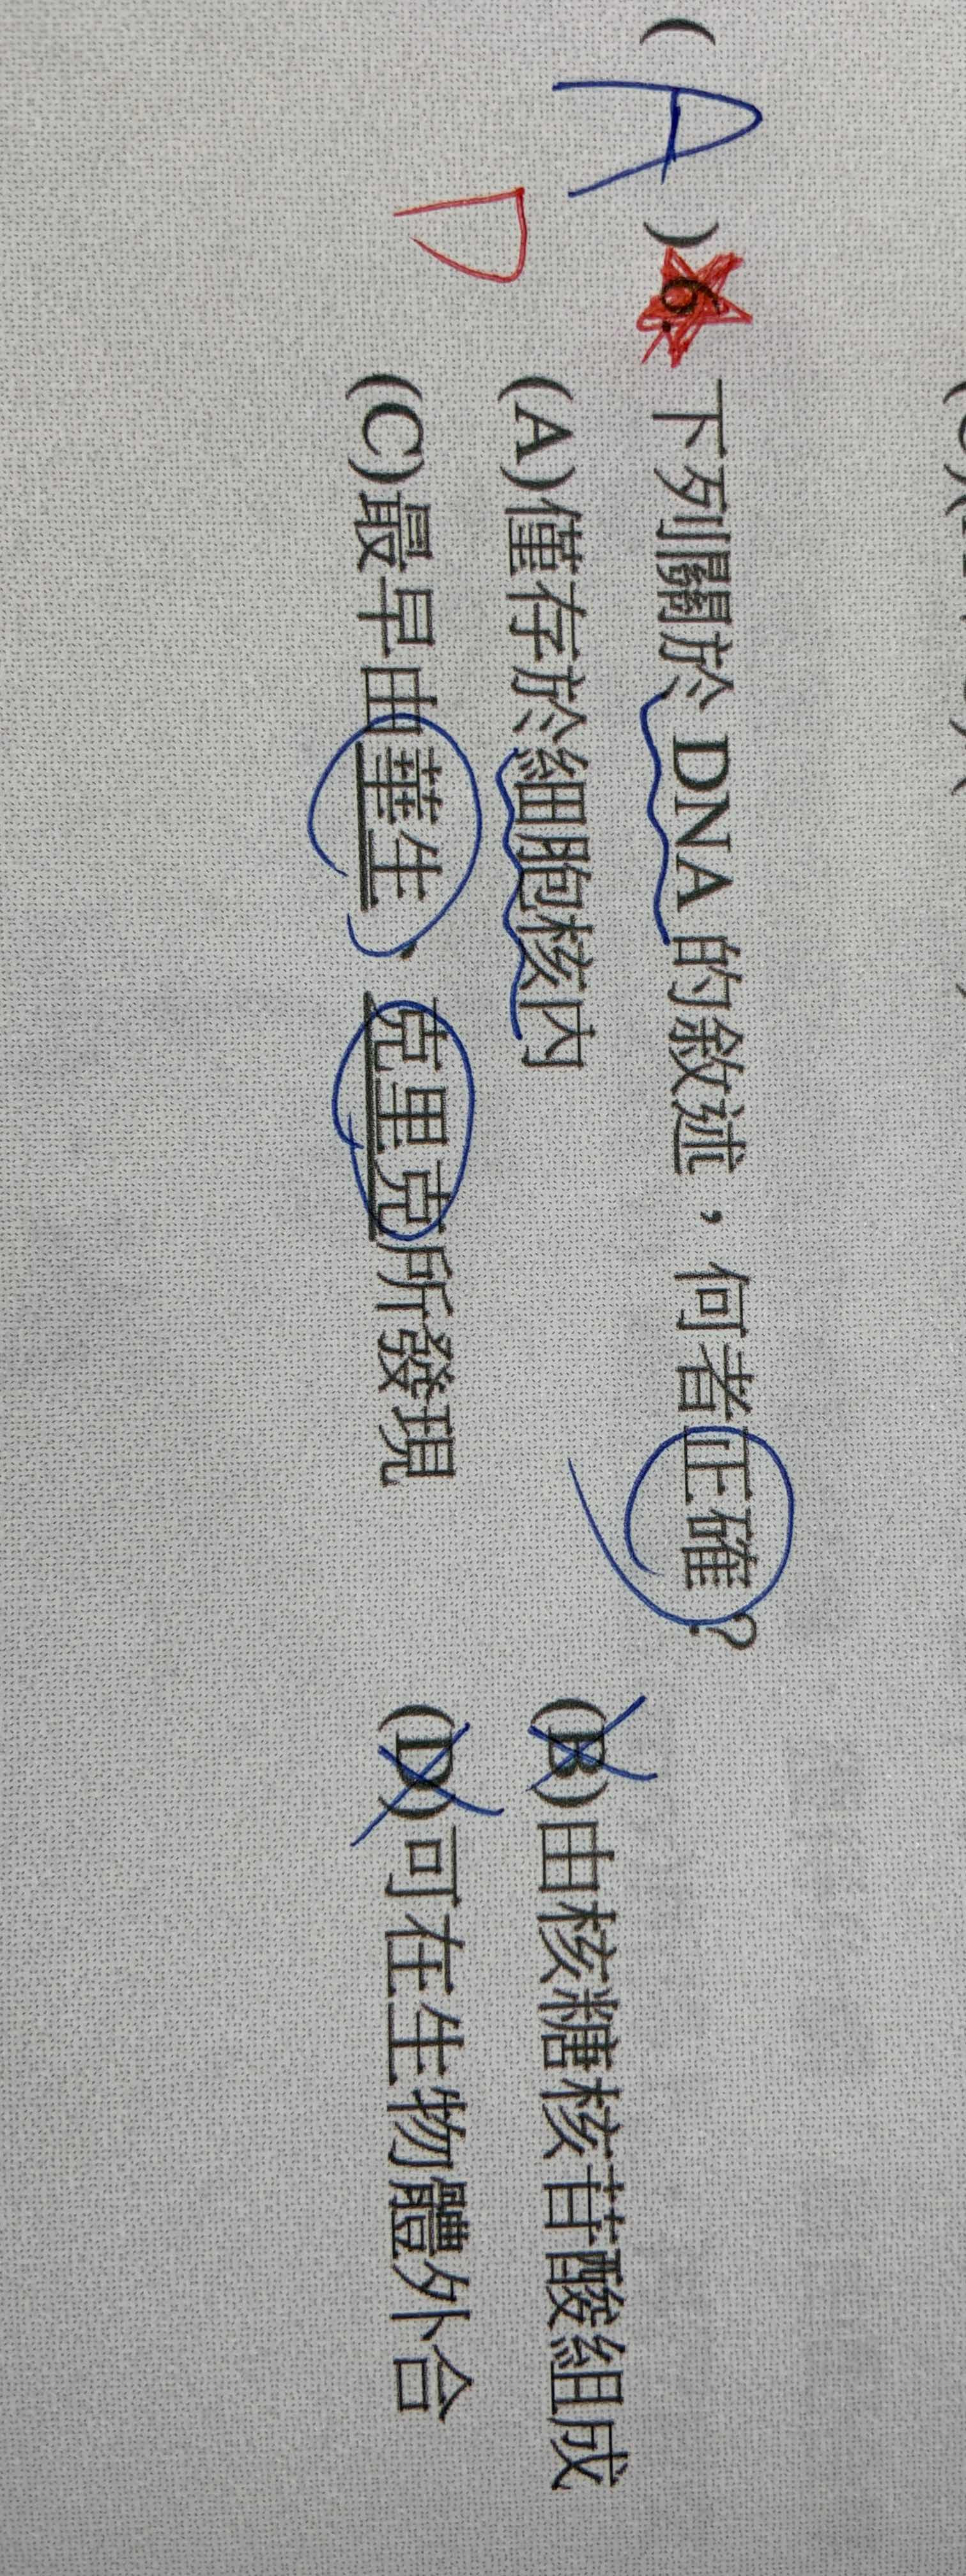 ( A )6. 下列關於 DNA 的敘述，何者正確?
D
(A)僅存於細胞核內 (B)由核糖核苷酸組成
(C)最早由華生、克里克所發現 (D)可在生物體外合